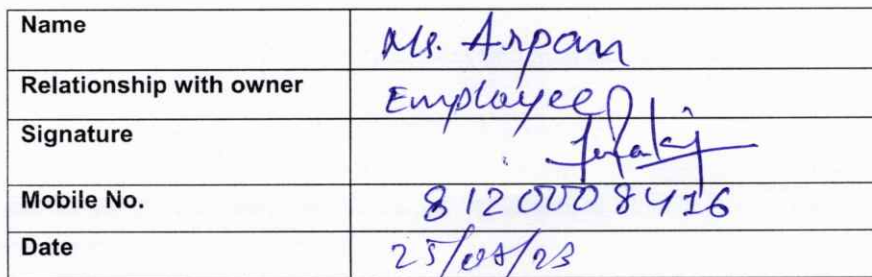 Name Mr. Arpan
Relationship with owner Employee
Signature
Mobile No. 8120008416
Date